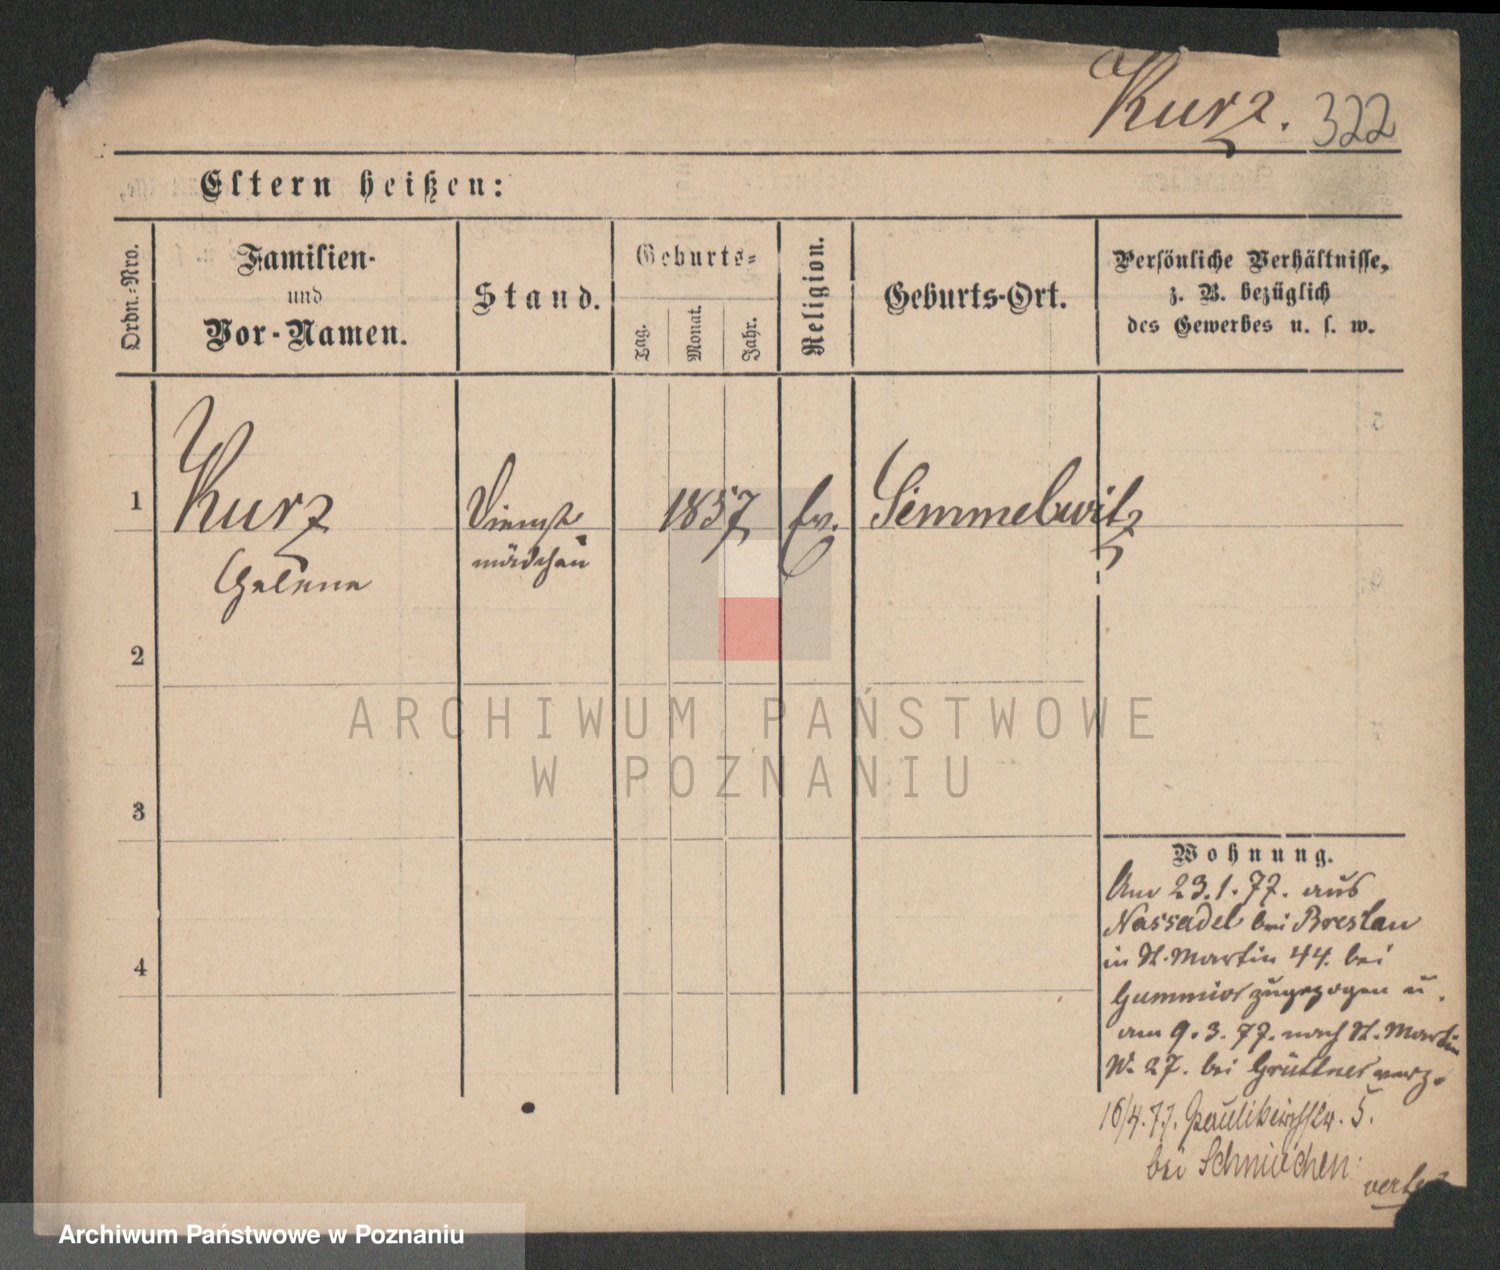 Kurz. 322
Eltern heißen:
Ordn.-Nro.
Familien-
und
Vor-Namen.
Stand.
Geburts-
Tag.
Monat.
Jahr.
Religion.
Geburts-Ort.
Persönliche Verhältnisse,
z. B. bezüglich
des Gewerbes u. s. w.
1 Kurz Dienst 1857 Ev. Simmelwitz
Helene mädchen
2
3
4
Wohnung.
Am 23.1.77. aus
Nassadel bei Breslau
in St. Martin 44. bei
zugezogen u.
am 9.3.77. nach St. Martin
No 27. bei Grüttner verz.
16/4.77. Paulikirchstr. 5.
bei
ARCHIWUM PAŃSTWOWE
W POZNANIU
Archiwum Państwowe w Poznaniu